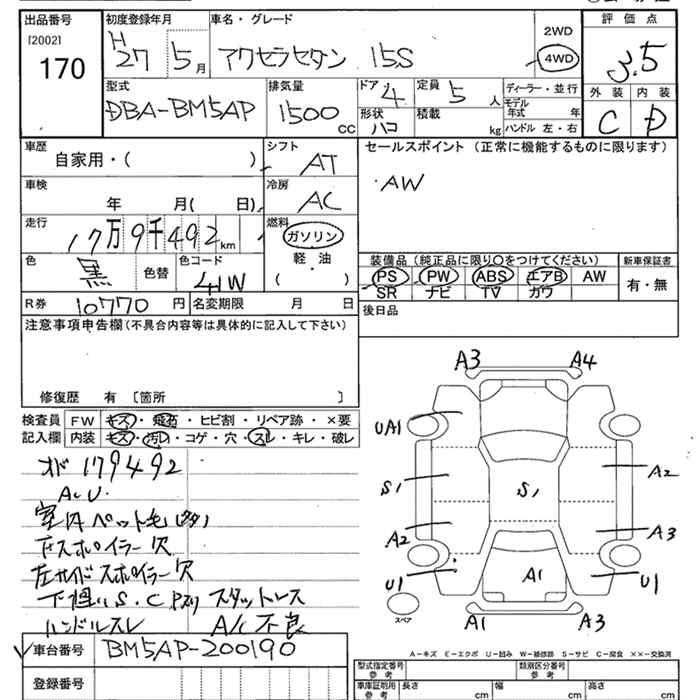 出品番号 初度登録年月 車名・グレード
[2002] H 27 5月 アクセラセダン 15S 2WD 4WD
170
評価点
3.5
外装 内装
C D
型式 排気量 ドア 定員 ディーラー・並行
DBA-BM5AP 1500 CC 4 5 人 モデル年式 年
形状 積載 ハコ kg ハンドル 左・右
車歴 シフト セールスポイント (正常に機能するものに限ります)
自家用・( ) AT
・AW
車検 冷房
年 月( 日) AC
走行 燃料
17万9千492km ガソリン
軽・油
・
( )
色 色替 色コード
黒 41W
装備品(純正品に限り○をつけてください) 新車保証書
PS PW ABS エアB AW 有・無
SR ナビ TV ガワ
R券 10770 円 名変期限 月 日
後日品
注意事項申告欄(不具合内容等は具体的に記入して下さい)
修復歴 有 〔箇所 〕
検査員 FW キズ・飛石・ヒビ割・リペア跡・×要
記入欄 内装 キズ・汚レ・コゲ・穴・スレ・キレ・破レ
オド179492
A.U.
室内ペット毛(多)
Fスポイラー欠
左サイドスポイラー欠
下廻りS.C スタットレス
ハンドルスレ A/C不良
車台番号 BM5AP-200190
登録番号
A3 A4
UA1
S1 S1 A2
A2 A3
U1 A1 U1
スペア
A1 A3
A-キズ E-エクボ U-凹み W-補修跡 S-サビ C-腐食 ××-交換済
型式指定番号 参考 類別区分番号 参考
車庫証明用 参考 長さ cm 幅 cm 高さ cm